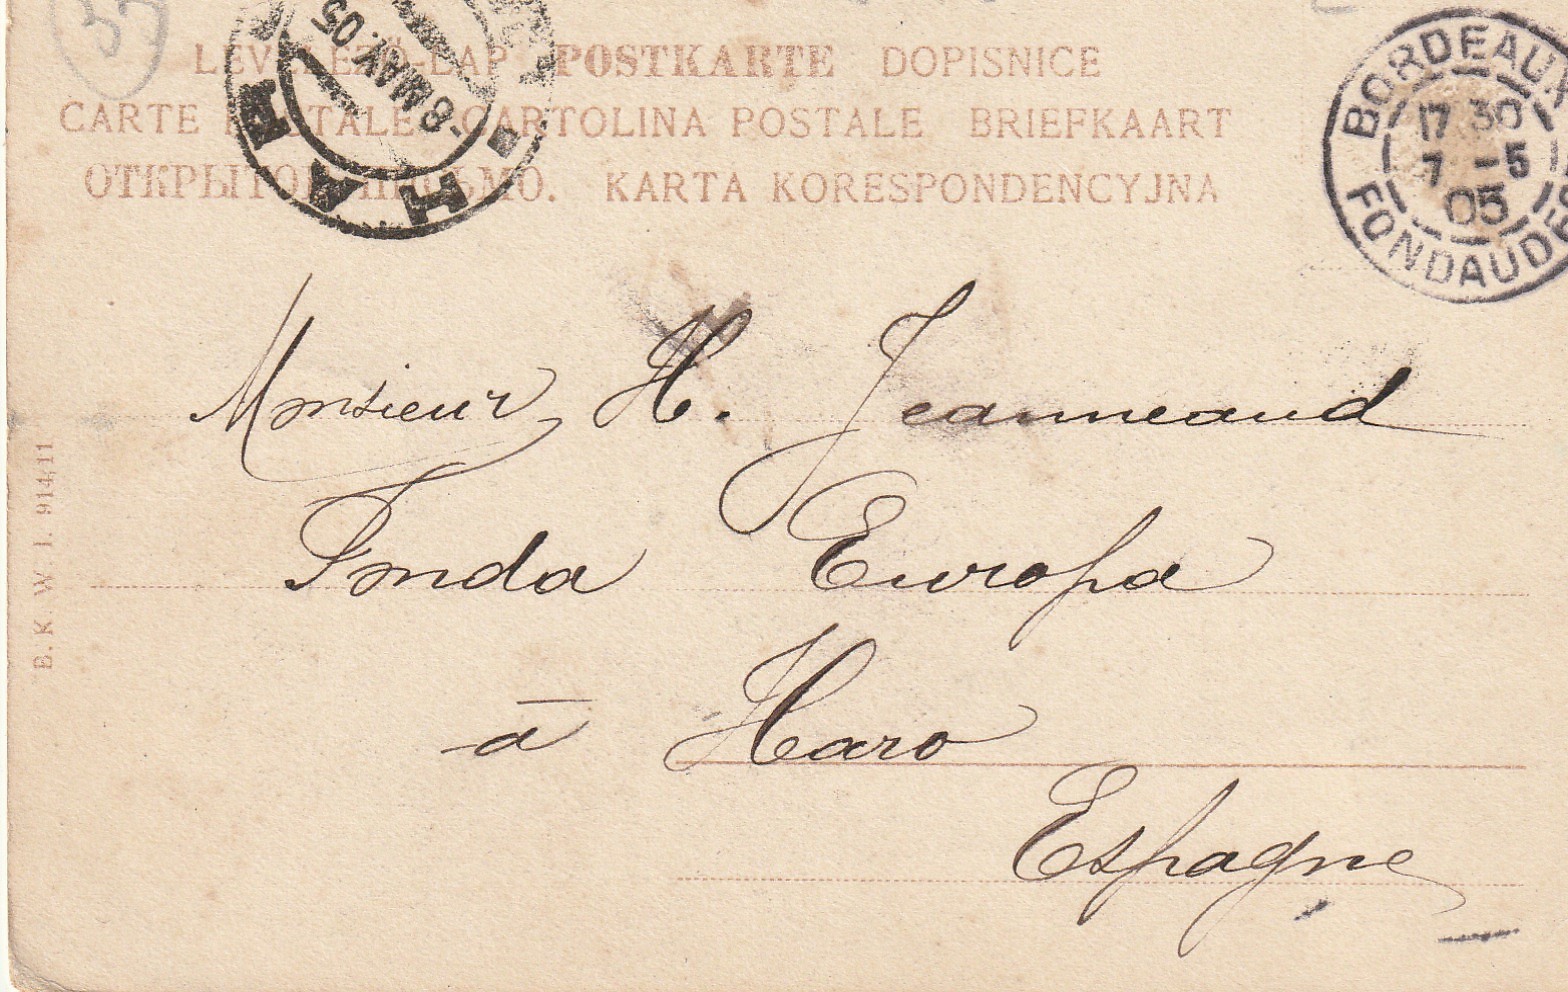 33
LEVELEZŐ-LAP POSTKARTE DOPISNICE
CARTE POSTALE CARTOLINA POSTALE BRIEFKAART
ОТКРЫТОЕ ПИСЬМО. KARTA KORESPONDENCYJNA
-8 MAY. 05
HA
BORDEAUX
17 30
7 -5
05
FONDAUDÈGE
Monsieur H. Jeanneaud
Fonda Europa
à Haro
Espagne
B. K. W. I. 914,11